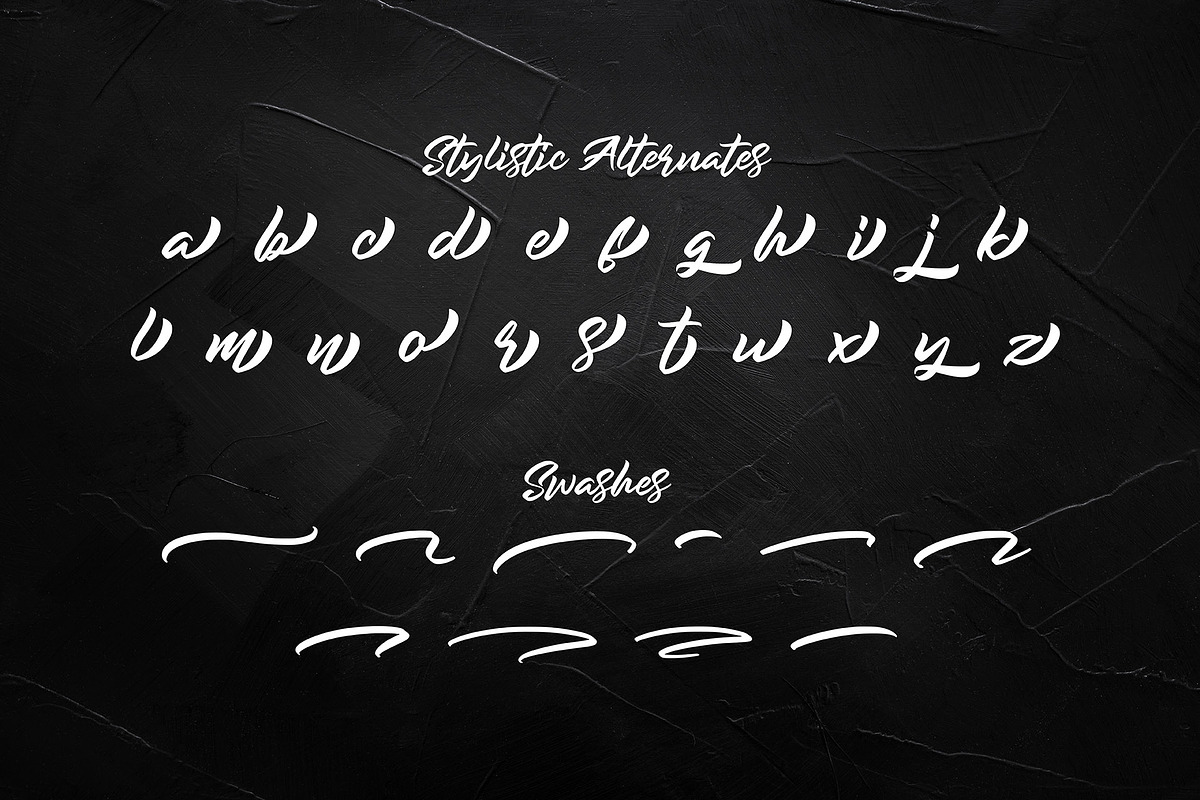 Stylistic Alternates
a b c d e f g h i j k
l m n o r s t w x y z
Swashes